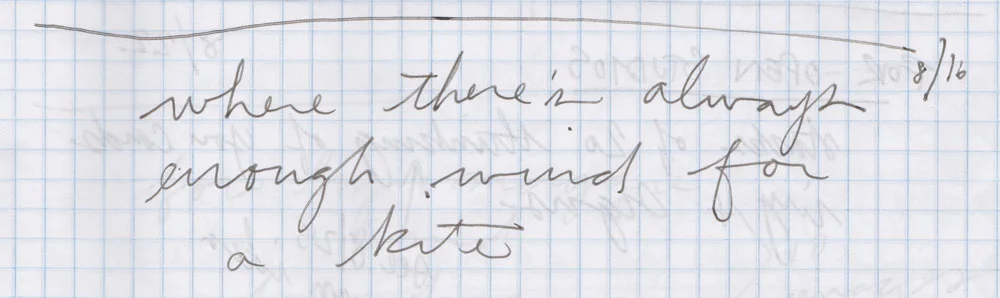 8/16
where there's always
enough wind for
a kite